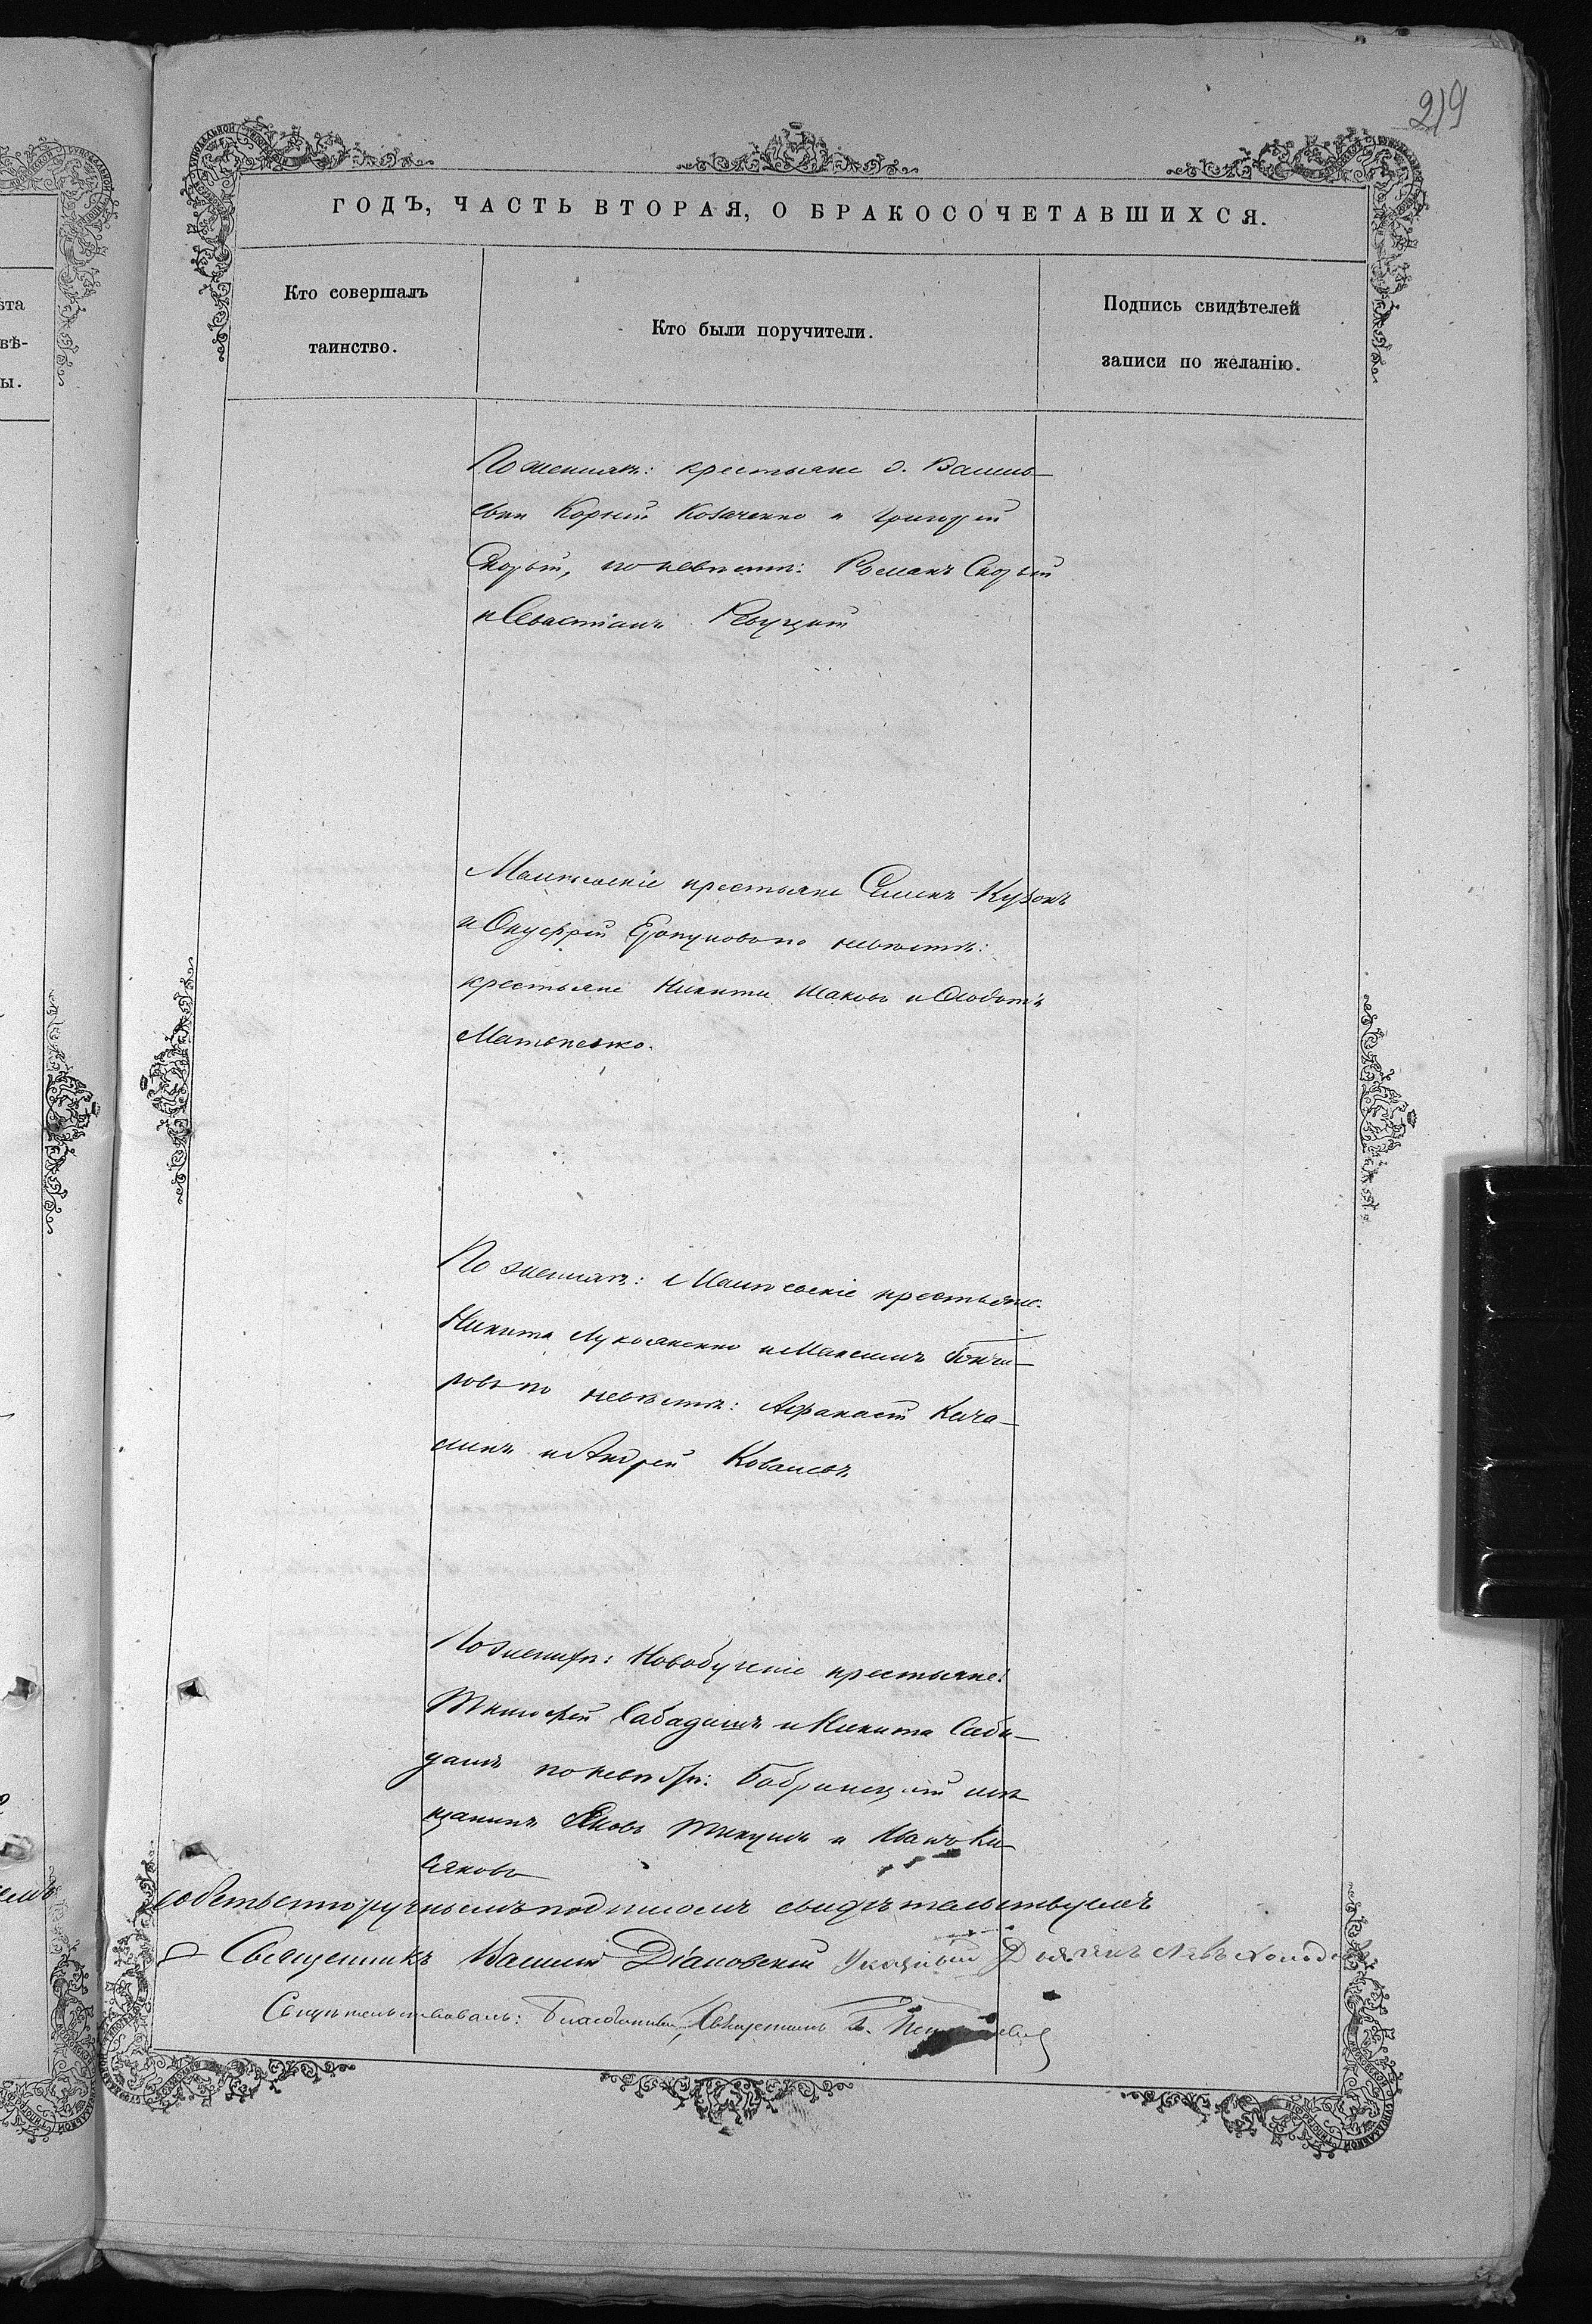 219
ГОДЪ, ЧАСТЬ ВТОРАЯ, О БРАКОСОЧЕТАВШИХСЯ.
Кто совершалъ
таинство.
Кто были поручители.
Подпись свидѣтелей
записи по желанію.
По женихѣ: крестьяне д. Василь-
евки Корній Козаченко и Григорій
Скорый, по невѣстѣ: Романъ Скорый
и Севастіанъ Ревуцкій
крестьяне Семенъ Кузокъ
и Онуфрій по невѣстѣ:
крестьяне Никита Шаковъ и Ѳеодотъ
Матвѣенко.
По женихѣ: крестьяне
Никита Лукьяненко и Максимъ Гонча-
ровъ по невѣстѣ: Афанасій Кича-
and Андрей Ковалевъ
По женихѣ: Новобугскіе крестьяне:
Тимофей Сабадашъ и Никита Саба-
дашъ по невѣстѣ: Бобринецкій мѣ-
щанинъ Яковъ Тикушъ и Иванъ Ки-
сяковъ
собственоручнымъ подписомъ свидѣтельствуемъ
Священникъ Василій Діановскій Указный Дьячекъ Левъ
Свидѣтельствовалъ: Благочинный, Священникъ